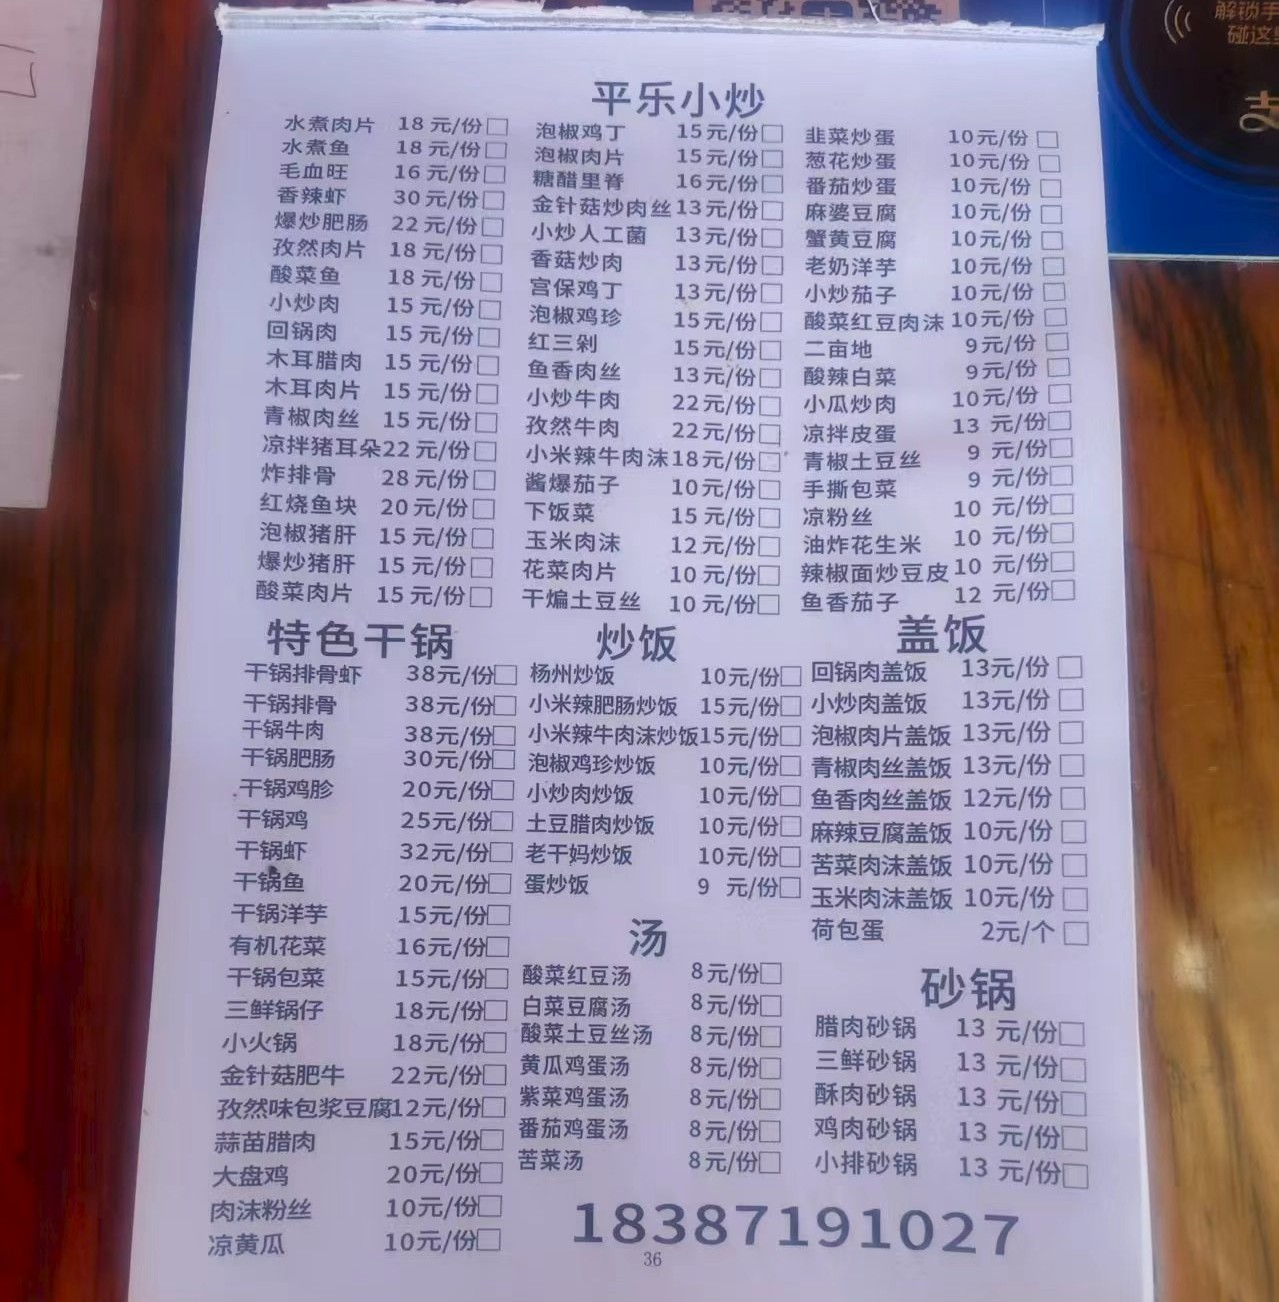 解锁手
碰这里
支
平乐小炒
水煮肉片 18 元/份
水煮鱼 18 元/份
毛血旺 16 元/份
香辣虾 30 元/份
爆炒肥肠 22 元/份
孜然肉片 18 元/份
酸菜鱼 18 元/份
小炒肉 15 元/份
回锅肉 15 元/份
木耳腊肉 15 元/份
木耳肉片 15 元/份
青椒肉丝 15 元/份
凉拌猪耳朵22 元/份
炸排骨 28 元/份
红烧鱼块 20 元/份
泡椒猪肝 15 元/份
爆炒猪肝 15 元/份
酸菜肉片 15 元/份
泡椒鸡丁 15元/份
泡椒肉片 15元/份
糖醋里脊 16元/份
金针菇炒肉丝13元/份
小炒人工菌 13元/份
香菇炒肉 13元/份
宫保鸡丁 13元/份
泡椒鸡珍 15元/份
红三剁 15元/份
鱼香肉丝 13元/份
小炒牛肉 22元/份
孜然牛肉 22元/份
小米辣牛肉沫18元/份
酱爆茄子 10元/份
下饭菜 15元/份
玉米肉沫 12元/份
花菜肉片 10元/份
干煸土豆丝 10元/份
韭菜炒蛋 10元/份
葱花炒蛋 10元/份
番茄炒蛋 10元/份
麻婆豆腐 10元/份
蟹黄豆腐 10元/份
老奶洋芋 10元/份
小炒茄子 10元/份
酸菜红豆肉沫10元/份
二亩地 9元/份
酸辣白菜 9元/份
小瓜炒肉 10元/份
凉拌皮蛋 13 元/份
青椒土豆丝 9 元/份
手撕包菜 9 元/份
凉粉丝 10 元/份
油炸花生米 10 元/份
辣椒面炒豆皮10 元/份
鱼香茄子 12 元/份
特色干锅
干锅排骨虾 38元/份
干锅排骨 38元/份
干锅牛肉 38元/份
干锅肥肠 30元/份
干锅鸡胗 20元/份
干锅鸡 25元/份
干锅虾 32元/份
干锅鱼 20元/份
干锅洋芋 15元/份
有机花菜 16元/份
干锅包菜 15元/份
三鲜锅仔 18元/份
小火锅 18元/份
金针菇肥牛 22元/份
孜然味包浆豆腐12元/份
蒜苗腊肉 15元/份
大盘鸡 20元/份
肉沫粉丝 10元/份
凉黄瓜 10元/份
炒饭
杨州炒饭 10元/份
小米辣肥肠炒饭 15元/份
小米辣牛肉沫炒饭15元/份
泡椒鸡珍炒饭 10元/份
小炒肉炒饭 10元/份
土豆腊肉炒饭 10元/份
老干妈炒饭 10元/份
蛋炒饭 9 元/份
汤
酸菜红豆汤 8元/份
白菜豆腐汤 8元/份
酸菜土豆丝汤 8元/份
黄瓜鸡蛋汤 8元/份
紫菜鸡蛋汤 8元/份
番茄鸡蛋汤 8元/份
苦菜汤 8元/份
盖饭
回锅肉盖饭 13元/份
小炒肉盖饭 13元/份
泡椒肉片盖饭 13元/份
青椒肉丝盖饭 13元/份
鱼香肉丝盖饭 12元/份
麻辣豆腐盖饭 10元/份
苦菜肉沫盖饭 10元/份
玉米肉沫盖饭 10元/份
荷包蛋 2元/个
砂锅
腊肉砂锅 13 元/份
三鲜砂锅 13 元/份
酥肉砂锅 13 元/份
鸡肉砂锅 13 元/份
小排砂锅 13 元/份
18387191027
36